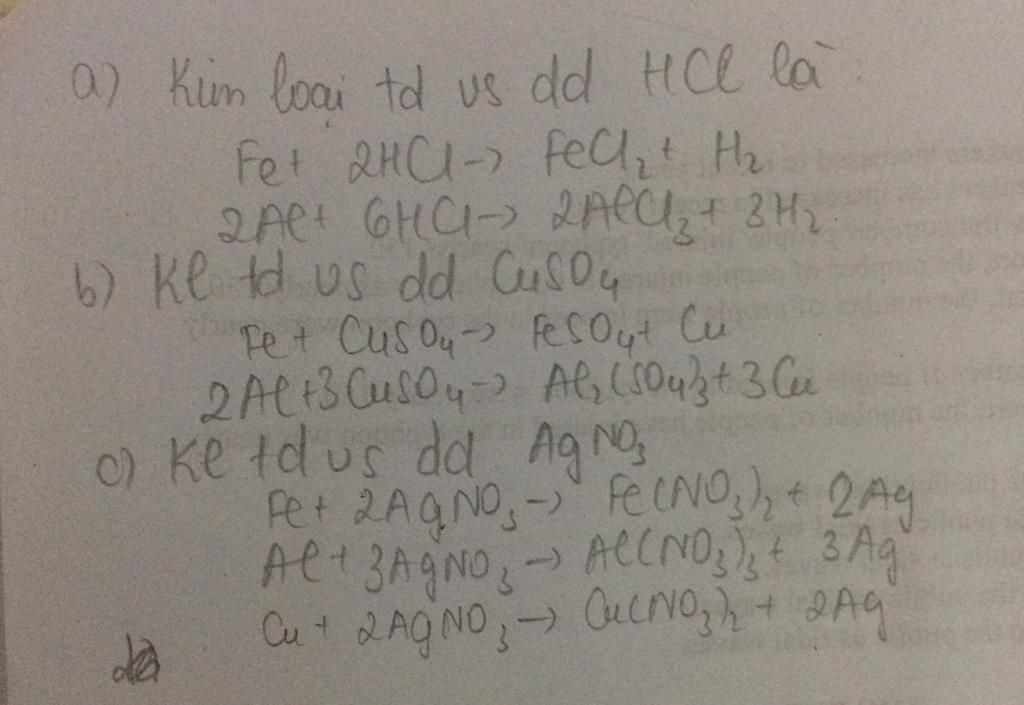 a) Kim loại td vs dd HCl là:
Fe + 2HCl -> FeCl₂ + H₂
2Al + 6HCl -> 2AlCl₃ + 3H₂
b) Kl td vs dd CuSO₄
Fe + CuSO₄ -> FeSO₄ + Cu
2Al + 3CuSO₄ -> Al₂(SO₄)₃ + 3Cu
c) Kl td vs dd AgNO₃
Fe + 2AgNO₃ -> Fe(NO₃)₂ + 2Ag
Al + 3AgNO₃ -> Al(NO₃)₃ + 3Ag
Cu + 2AgNO₃ -> Cu(NO₃)₂ + 2Ag